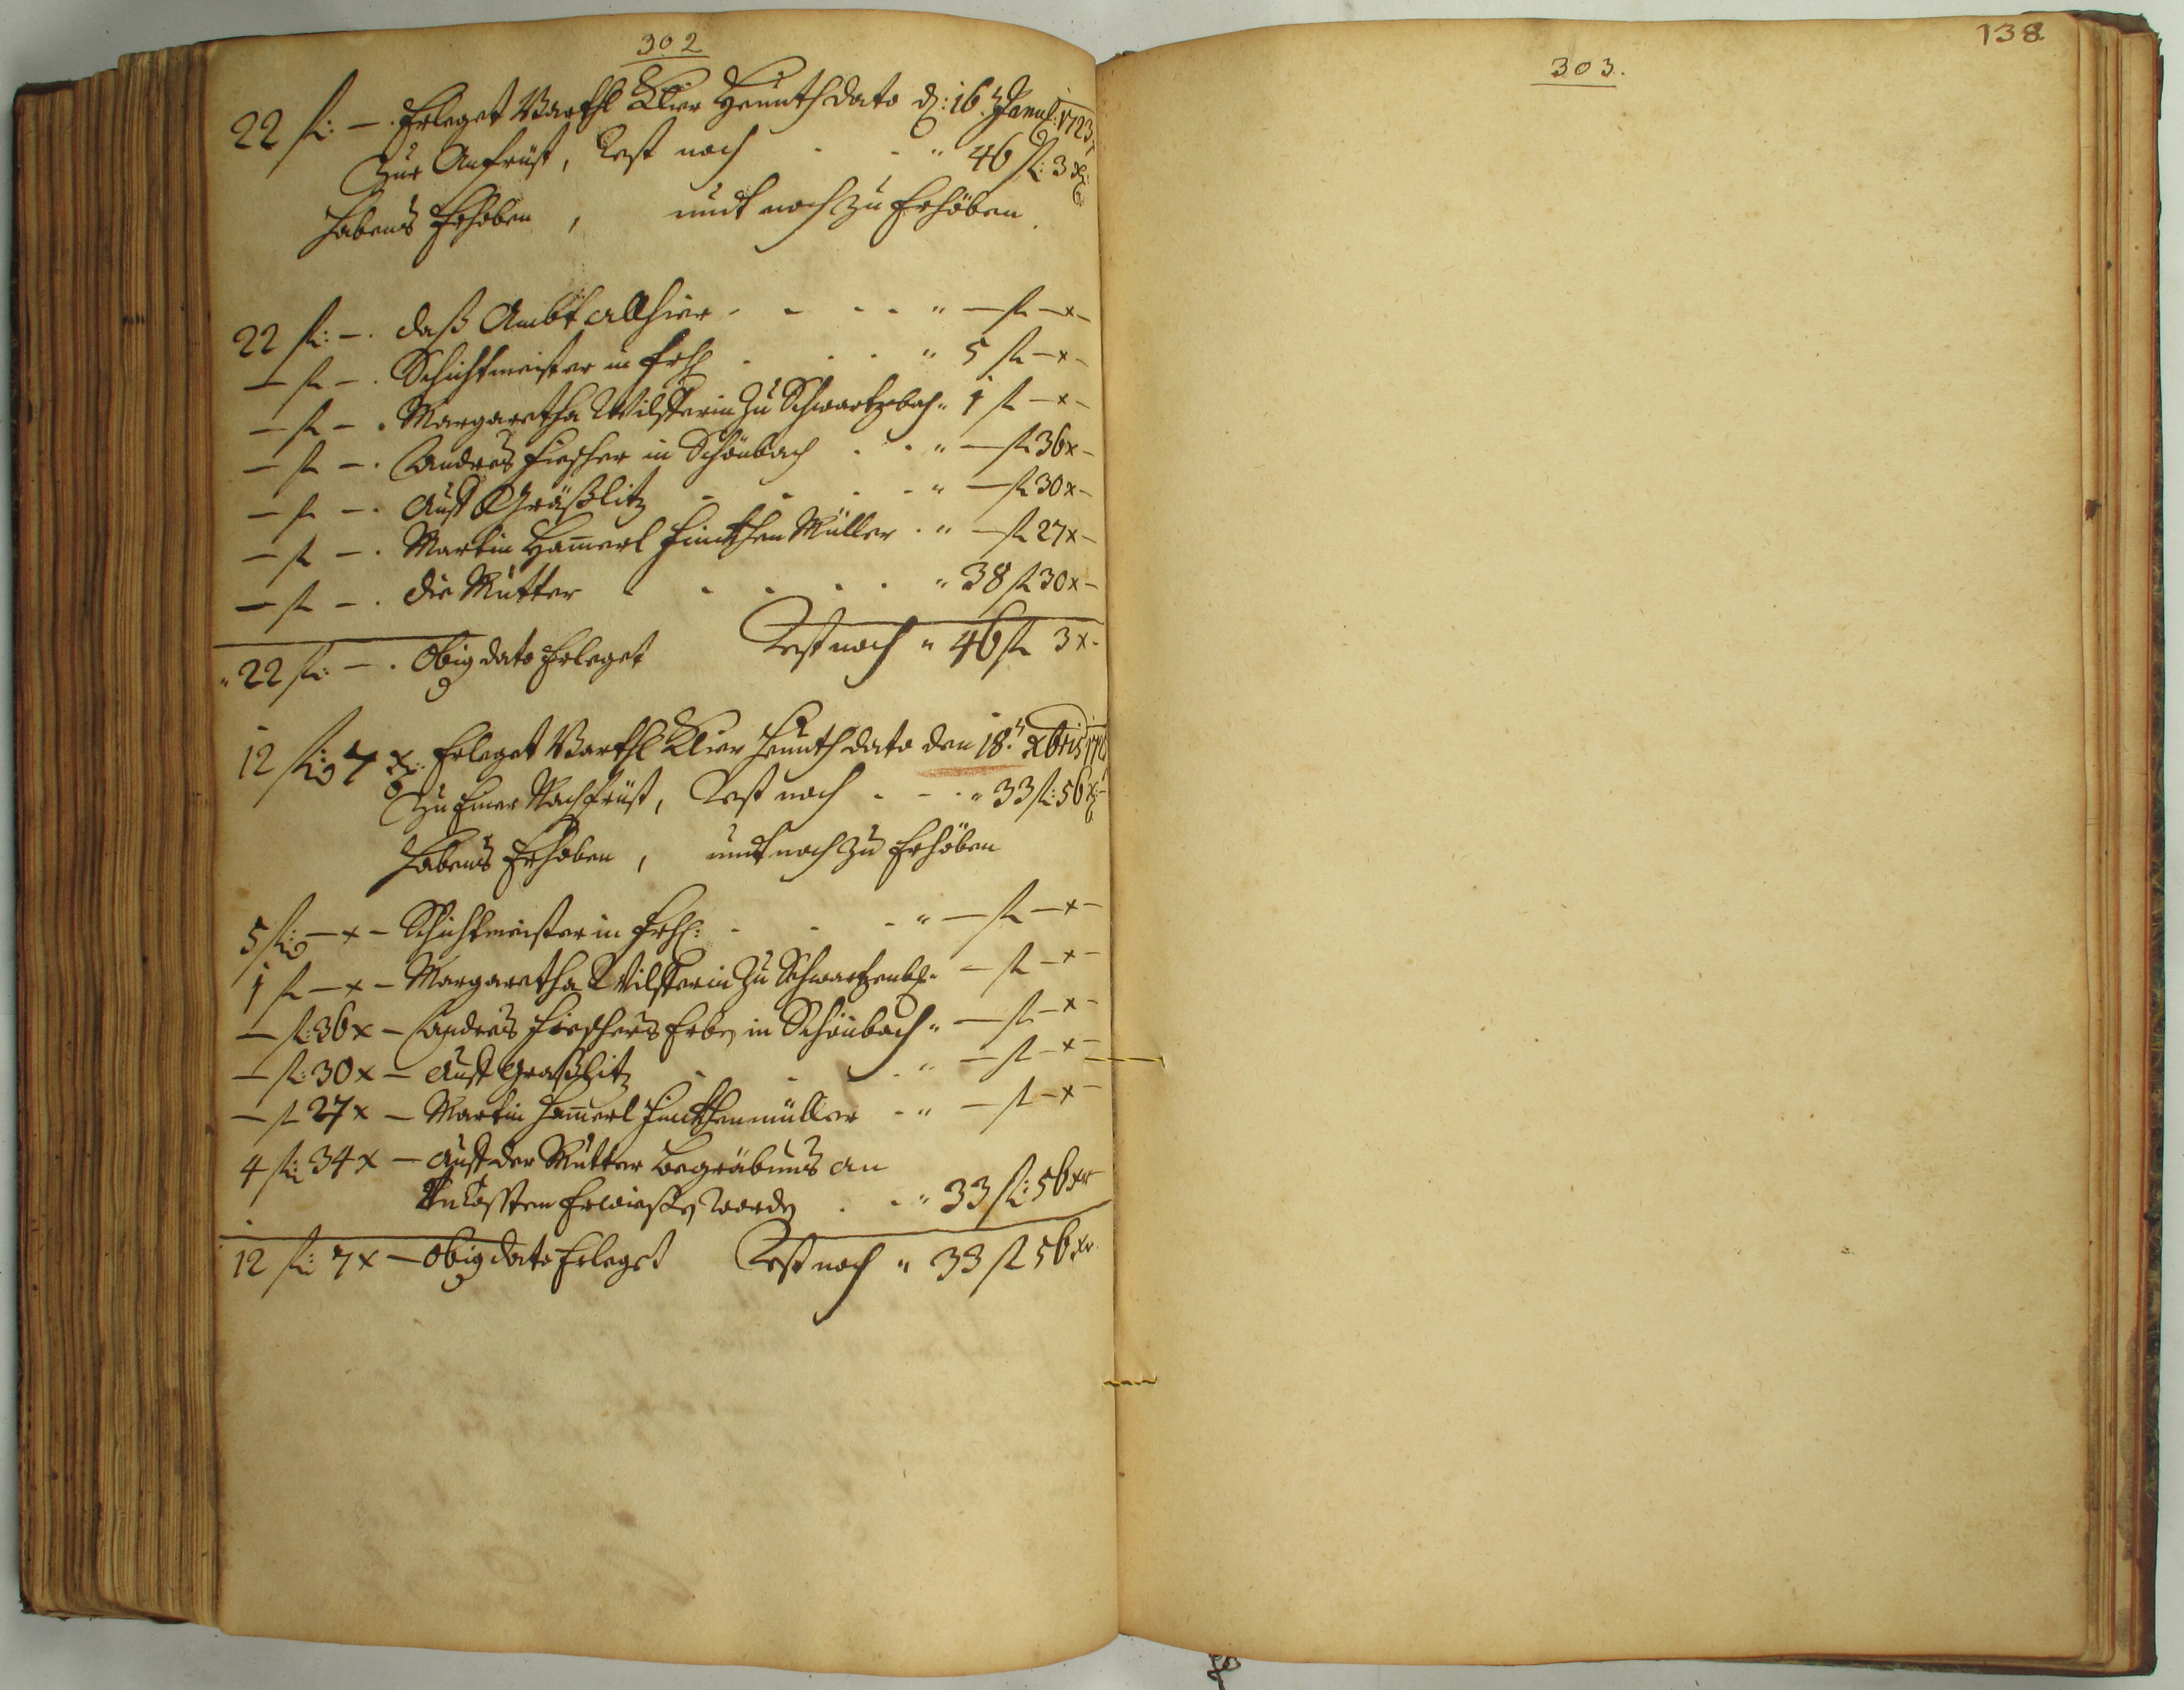 302
22 fl: — . Erleget Barthl Klier Heunth dato d: 16t Januę: 1723,
Zur Anfrüst, Rest noch . . " 46 fl: 3 xr:
habens Erhoben , undt noch zu Erhöben .
22 fl: — . daß Ambt allhier . . . . " — fl — x —
— fl — . Schichtmeister in . . . " 5 fl — x —
— fl — . Margaretha Wilfferin Zu Schwartzbach " 1 fl — x —
— fl — . Andreß Fischer in Schönbach . . " — fl 36 x —
— fl — . Aust Gräßlitz . . . . " — fl 30 x —
— fl — . Martin Ham̄erl Finckhen Müller . " — fl 27 x —
— fl — . die Mutter . . . . " 38 fl 30 x —
" 22 fl: — . Obig dato Erleget Rest noch " 46 fl 3 x —
12 fl: 7 xr: Erleget Barthl Klier Heunth dato den 18.t Xbris
Zu Einer Nachfrüst, Rest noch . . . " 33 fl: 56 xr
habens Erhoben , undt noch zu Erhöben
5 fl: — x — Schichtmeister in . . . " — fl — x —
1 fl — x — Margaretha Wilfferin Zu Schwartzenb: " — fl — x —
— fl: 36 x — Andreß Fischers Erben in Schönbach " — fl — x —
— fl: 30 x — Aust Graßlitz . . . " — fl — x —
— fl 27 x — Martin Ham̄erl Finckhenmüller . " — fl — x —
4 fl: 34 x — Aust der Mutter Begräbnus an
Unkossten Erwiesen worden . . " 33 fl: 56 xr
12 fl: 7 x — Obig dato Erleget Rest noch " 33 fl 56 xr
303.
138